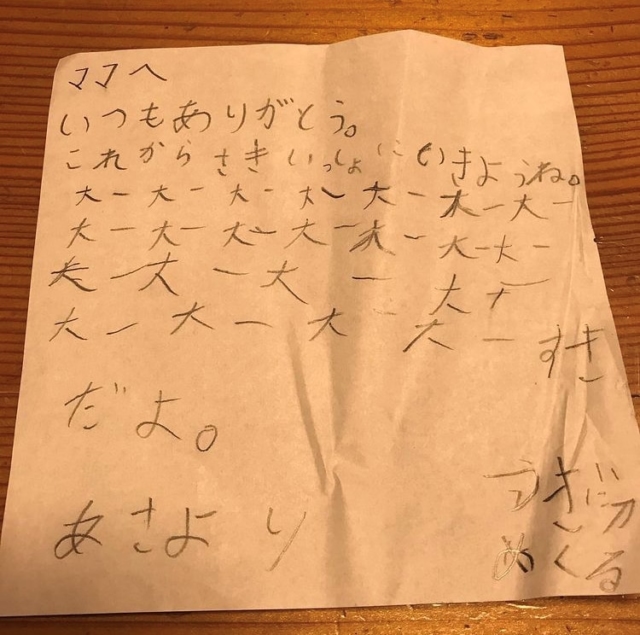 ママへ
いつもありがとう。
これからさきいっしょにいきようね。
大ー大ー大ー大ー大ー大ー大ー
大ー大ー大ー大ー大ー大ー大ー
大ー大ー大ー大ー
大ー大ー大ー大ーすき
だよ。
あさより
めくる